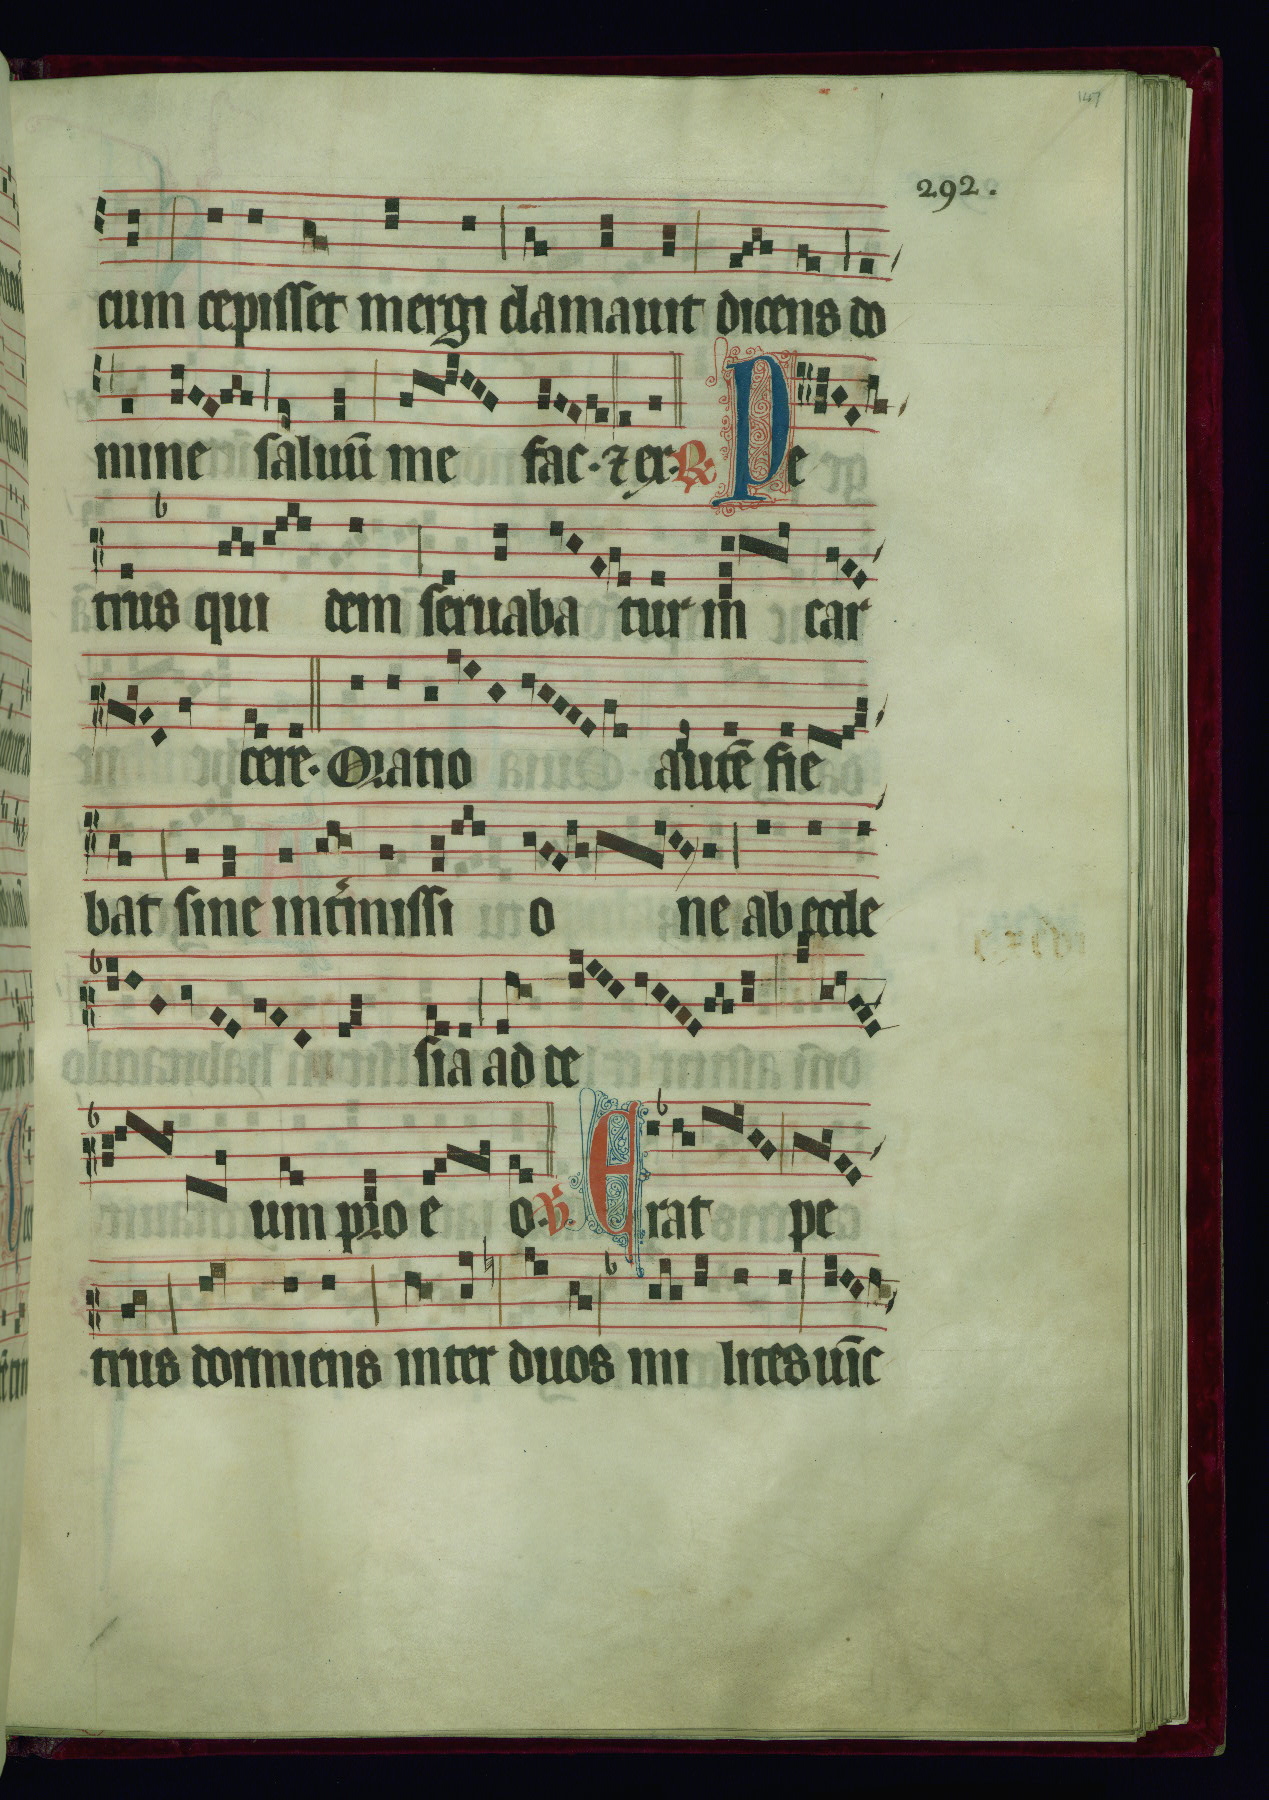 147
292.
cum cepisset mergi clamauit dicens do
mine saluū me fac. ⁊ ex. ℟ Pe
trus qui dem seruaba tur in car
cere. Oratio autē fie
bat sine int̾missi o ne ab eccle
sia ad de
um pro e o. ℣ Erat pe
trus dormiens inter duos mi lites uīc